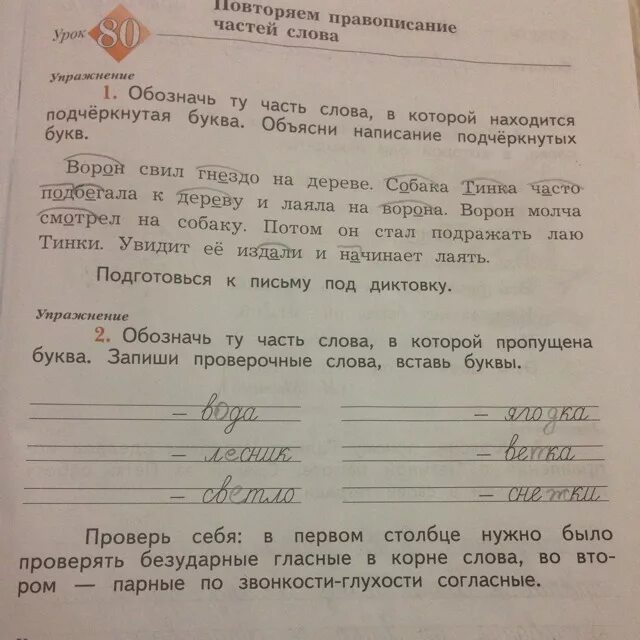 Повторяем правописание
Урок 80 частей слова
Упражнение
1. Обозначь ту часть слова, в которой находится
подчёркнутая буква. Объясни написание подчёркнутых
букв.
Ворон свил гнездо на дереве. Собака Тинка часто
подбегала к дереву и лаяла на ворона. Ворон молча
смотрел на собаку. Потом он стал подражать лаю
Тинки. Увидит её издали и начинает лаять.
Подготовься к письму под диктовку.
Упражнение
2. Обозначь ту часть слова, в которой пропущена
буква. Запиши проверочные слова, вставь буквы.
– вода – ягодка
– лесник – ветка
– светло – снежки
Проверь себя: в первом столбце нужно было
проверять безударные гласные в корне слова, во вто-
ром — парные по звонкости-глухости согласные.